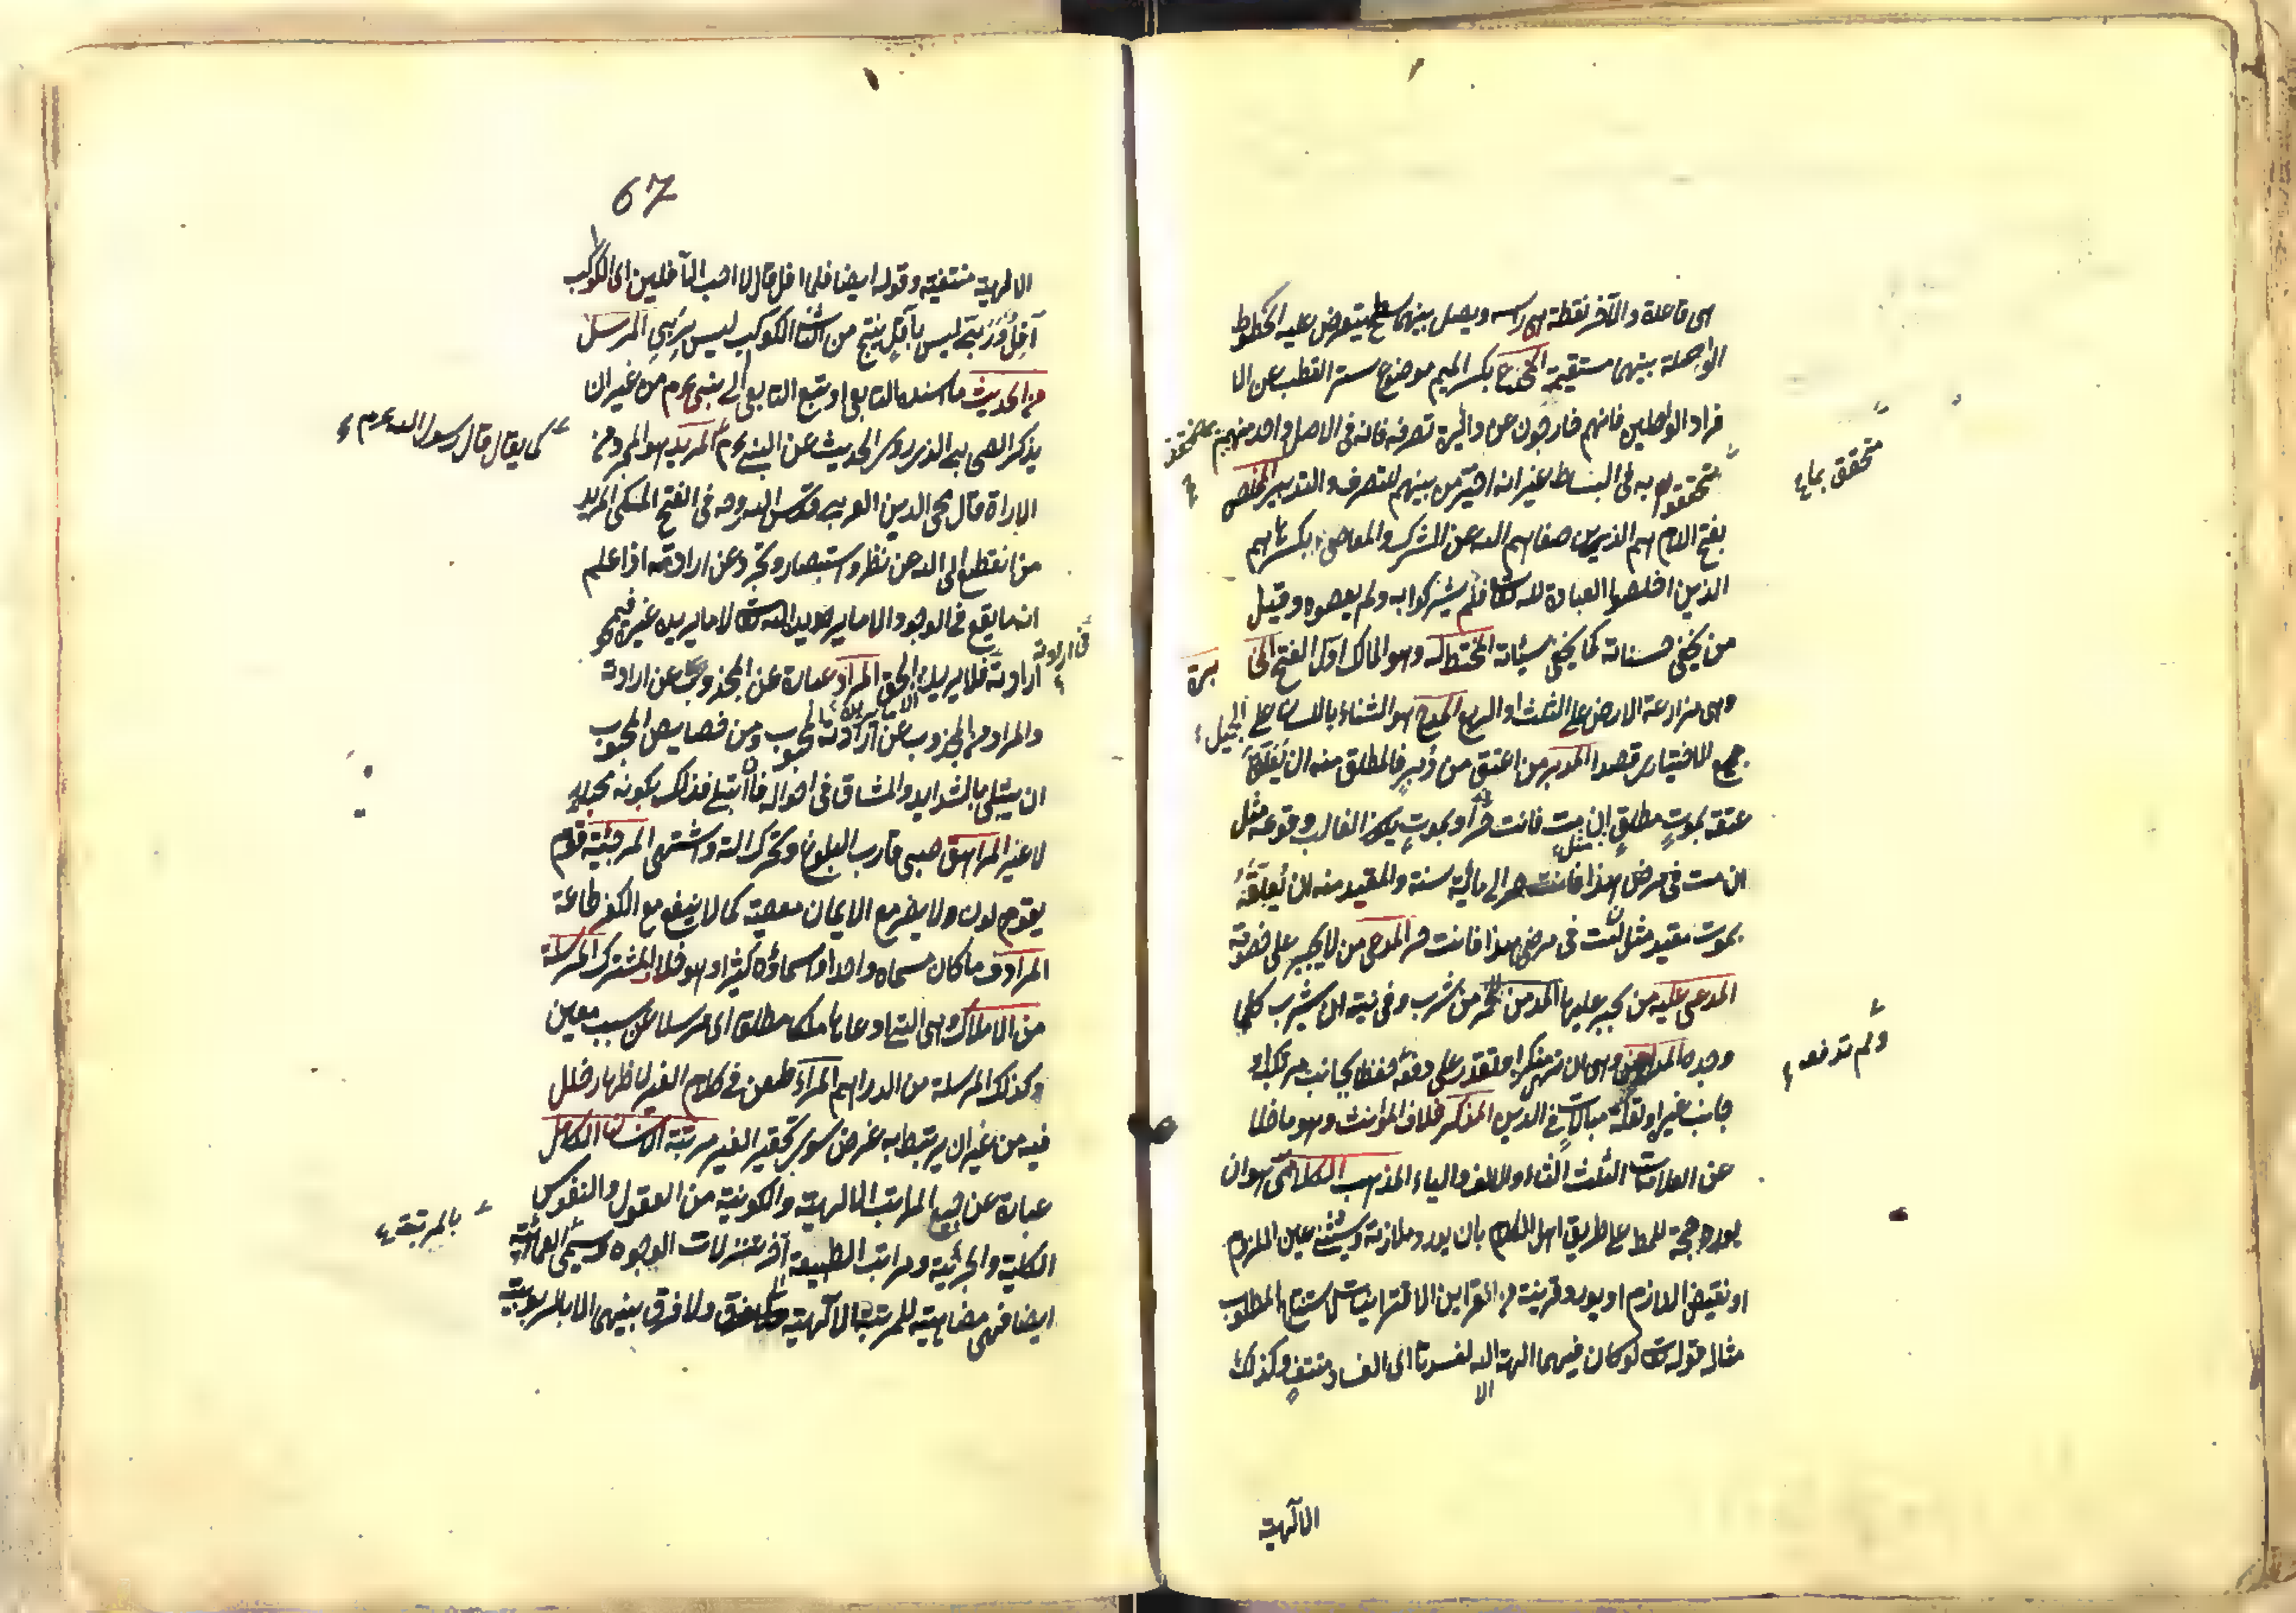 هى قاعدة والآخر نقطة هى راسه ويصل بينهما سطح يتعرض عليه الخطوط
الواصلة بينهما مستقيمة المخدع بكسر الميم موضوع ستر القطب عن الا
فراد الواصلين فانهم خارجون عن دائرة تصرفه فانه فى الاصل واحد منهم
متحقق بما
متحققوا به فى البساط غير انه اختير من بينهم للتصرف والتدبير المخلص
بفتح اللام هم الذين صفاهم الله عن الشرك والمعاصى وبكسرها هم
الذين اخلصوا العبادة لله تعا فلم يشركوا به ولم يعصوه وقيل
من يخفى حسناته كما يخفى سيئاته المختط له وهو المالك اول الفتح المخا
برة
وهى مزارعة الارض على الثلث او الربع المدح هو الثناء باللسان على الجميل
الاختيارى قصدا المدبر من اعتق من دبر فالمطلق منه ان يعلق
عتقه بموت مطلق مثل ان مت فانت حر او بموت يكون الغالب وقوعه مثل
ان مت فى مرض هذا فانت حر الى مائية سنة والمقيد منه ان يعلقه
بموت مقيد مثل ان مت فى مرضى هذا فانت حر المدعى من لا يجبر على خصومة
المدعى عليه من يجبر عليها المدمن للخمر من شرب وفى نيته ان يشرب كلما
وجده المداهنة وهى ان ترى منكرا وتقدر على دفعه فلحفظ لجانب مرتكبه او
ولم تدفعه
جانب غيره او لقلة مبالات فى الدين المذكر خلاف المؤنث وهو ما خلا
عن العلامات الثلث التاء والالف والياء المذهب الكلامى هو ان
يورد حجة للمط على طريق اهل الكلام بان يورد ملازمة ويستثنى عين الملزوم
او نقيض اللازم او يورد قرينة من القراين الاقترانيات لاستنتاج المطلوب
مثاله قوله تعا لو كان فيهما الهة الا الله لفسدتا اى الفساد منتف وكذلك
الآلهية
67
الالهية منتفية وقوله ايضا فلما افل قال لا احب الآفلين اى الكوكب
آفل وربى ليس بآفل ينتج من الثانى الكوكب ليس بربى المرسل
من الحديث ما اسنده التابعى او تبع التابعى الى النبى عم من غير ان
يذكر الصحابى الذى روى الحديث عن النبى عم المريد هو المجرد عن
كما يقال قال رسول الله عم
الارادة قال محى الدين العربى قدس الله روحه فى الفتح المكى المريد
من انقطع الى الله عن نظر واستبصار وتجرد عن ارادته اذا علم
انه ما يقع فى الوجود الا ما يريده الله تعا لا ما يريده غيره فيمحو
ارادته فى ارادته فلا يريد الا ما يريده الحق المراد عبارة عن المجذوب عن ارادته
والمراد من المجذوب عن ارادته المحبوب ومن خصايص المحبوب
ان يبتلى بالشدايد والمشاق فى احواله فان ابتلى فذلك يكون محبا
لا غير المراهق صبى قارب البلوغ وتحرك آلته واشتهى المرجئة قوم
يقولون ولا يضر مع الايمان معصية كما لا ينفع مع الكفر طاعة
المرادف ما كان مسماه واحدا واسماؤه كثيرة وهو خلاف المشترك المرسلة
من الاملاك وهى التى ادعاها ملكا مطلقا اى مرسلا عن سبب معين
وكذلك المرسلة من الدراهم المراء طعن فى كلام الغير لاظهار خلل
فيه من غير ان يرتبط به غرض سوى تحقير الغير مرتبة الانسان الكامل
عبارة عن جميع المراتب الالهية والكونية من العقول والنفوس
الكلية والجزئية ومراتب الطبيعة الى آخر تنزلات الوجود ويسمى بالمرتبة العمائية
ايضا فهى مضاهية للمرتبة الآلهية ولا فرق بينهما الا بالربوبية